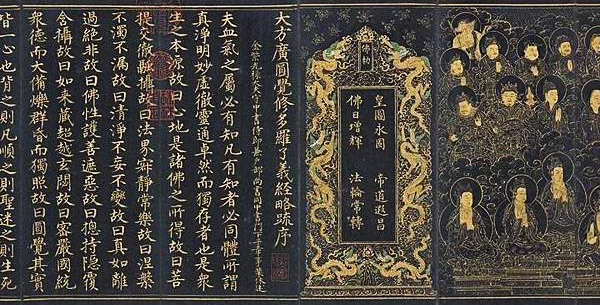 佛勅
皇圖永固　帝道遐昌
佛日增輝　法輪常轉
大方廣圓覺修多羅了義經略疏序
金紫光祿大夫守中書侍郎兼戶部尚書同中書門下平章事裴休述
夫血氣之屬必有知凡有知者必同體所謂
真淨明妙虛徹靈通卓然而獨存者也是眾
生之本源故曰心地是諸佛之所得故曰菩
提交徹融攝故曰法界寂靜常樂故曰涅槃
不濁不漏故曰清淨不妄不變故曰真如離
過絕非故曰佛性護善遮惡故曰總持隱覆
含攝故曰如來藏超越玄閟故曰密嚴國統
眾德而大備爍群昏而獨照故曰圓覺其實
皆一心也背之則凡順之則聖迷之則生死